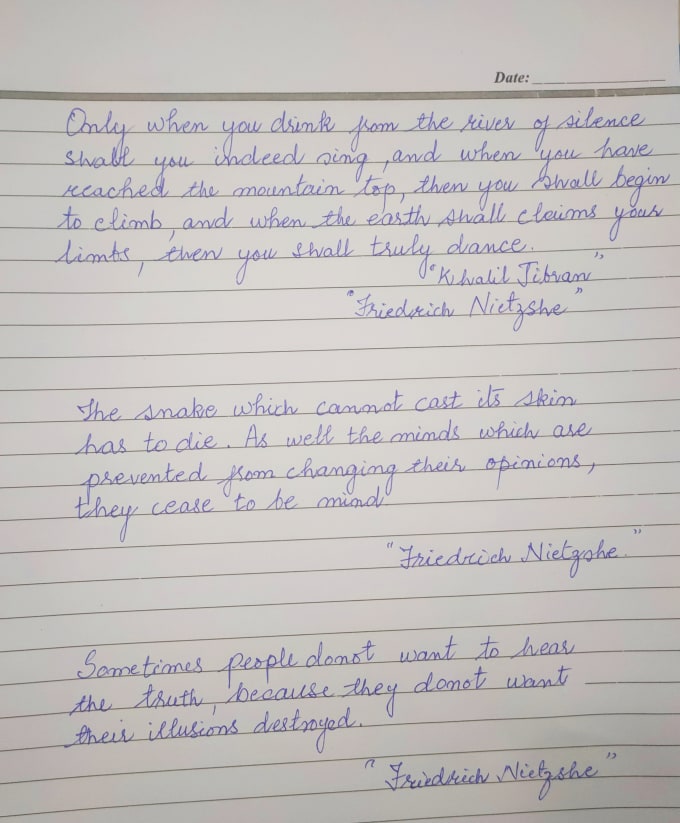 Date:
Only when you drink from the river of silence
shall you indeed sing, and when you have
reached the mountain top, then you shall begin
to climb, and when the earth shall claims your
limbs, then you shall truly dance.
"Khalil Jibran"
"Friedrich Nietzshe"
The snake which cannot cast its skin
has to die. As well the minds which are
prevented from changing their opinions,
they cease to be mind
"Friedrich Nietzshe."
Sometimes people donot want to hear
the truth, because they donot want
their illusions destroyed.
"Friedrich Nietzshe"